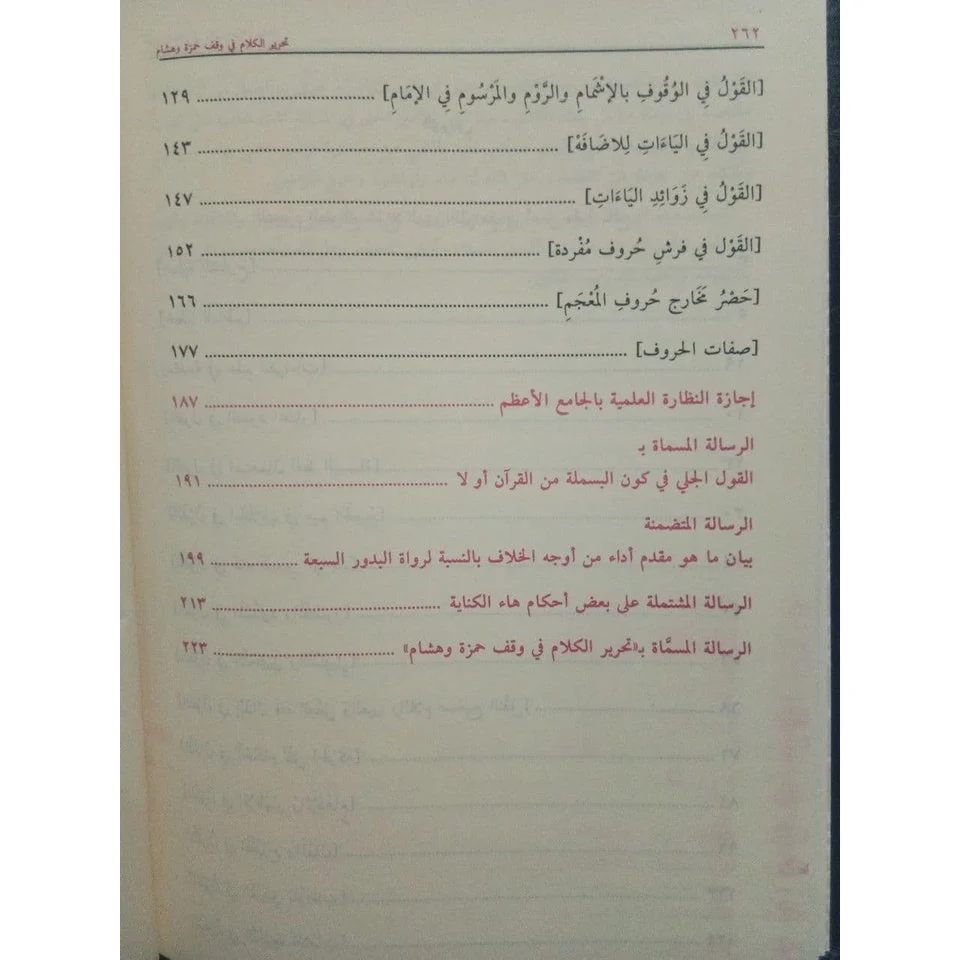 ٢٦٢
تحرير الكلام في وقف حمزة وهشام
[القَوْلُ فِي الوُقُوفِ بالإشْمامِ والرَّوْمِ والمَرْسُومِ فِي الإمَامِ] ........ ١٢٩
[القَوْلُ فِي اليَاءَاتِ لِلاضَافَهْ] ........ ١٤٣
[القَوْلُ فِي زَوَائِدِ اليَاءَاتِ] ........ ١٤٧
[القَوْل في فرشِ حُروف مُفْردة] ........ ١٥٢
[حَصْرُ مَخَارج حُروفِ المُعْجَمِ] ........ ١٦٦
[صفات الحروف] ........ ١٧٧
إجازة النظارة العلمية بالجامع الأعظم ........ ١٨٧
الرسالة المسماة بـ
القول الجلي في كون البسملة من القرآن أو لا ........ ١٩١
الرسالة المتضمنة
بيان ما هو مقدم أداء من أوجه الخلاف بالنسبة لرواة البدور السبعة ........ ١٩٩
الرسالة المشتملة على بعض أحكام هاء الكناية ........ ٢١٣
الرسالة المسمَّاة بـ«تحرير الكلام في وقف حمزة وهشام» ........ ٢٢٣